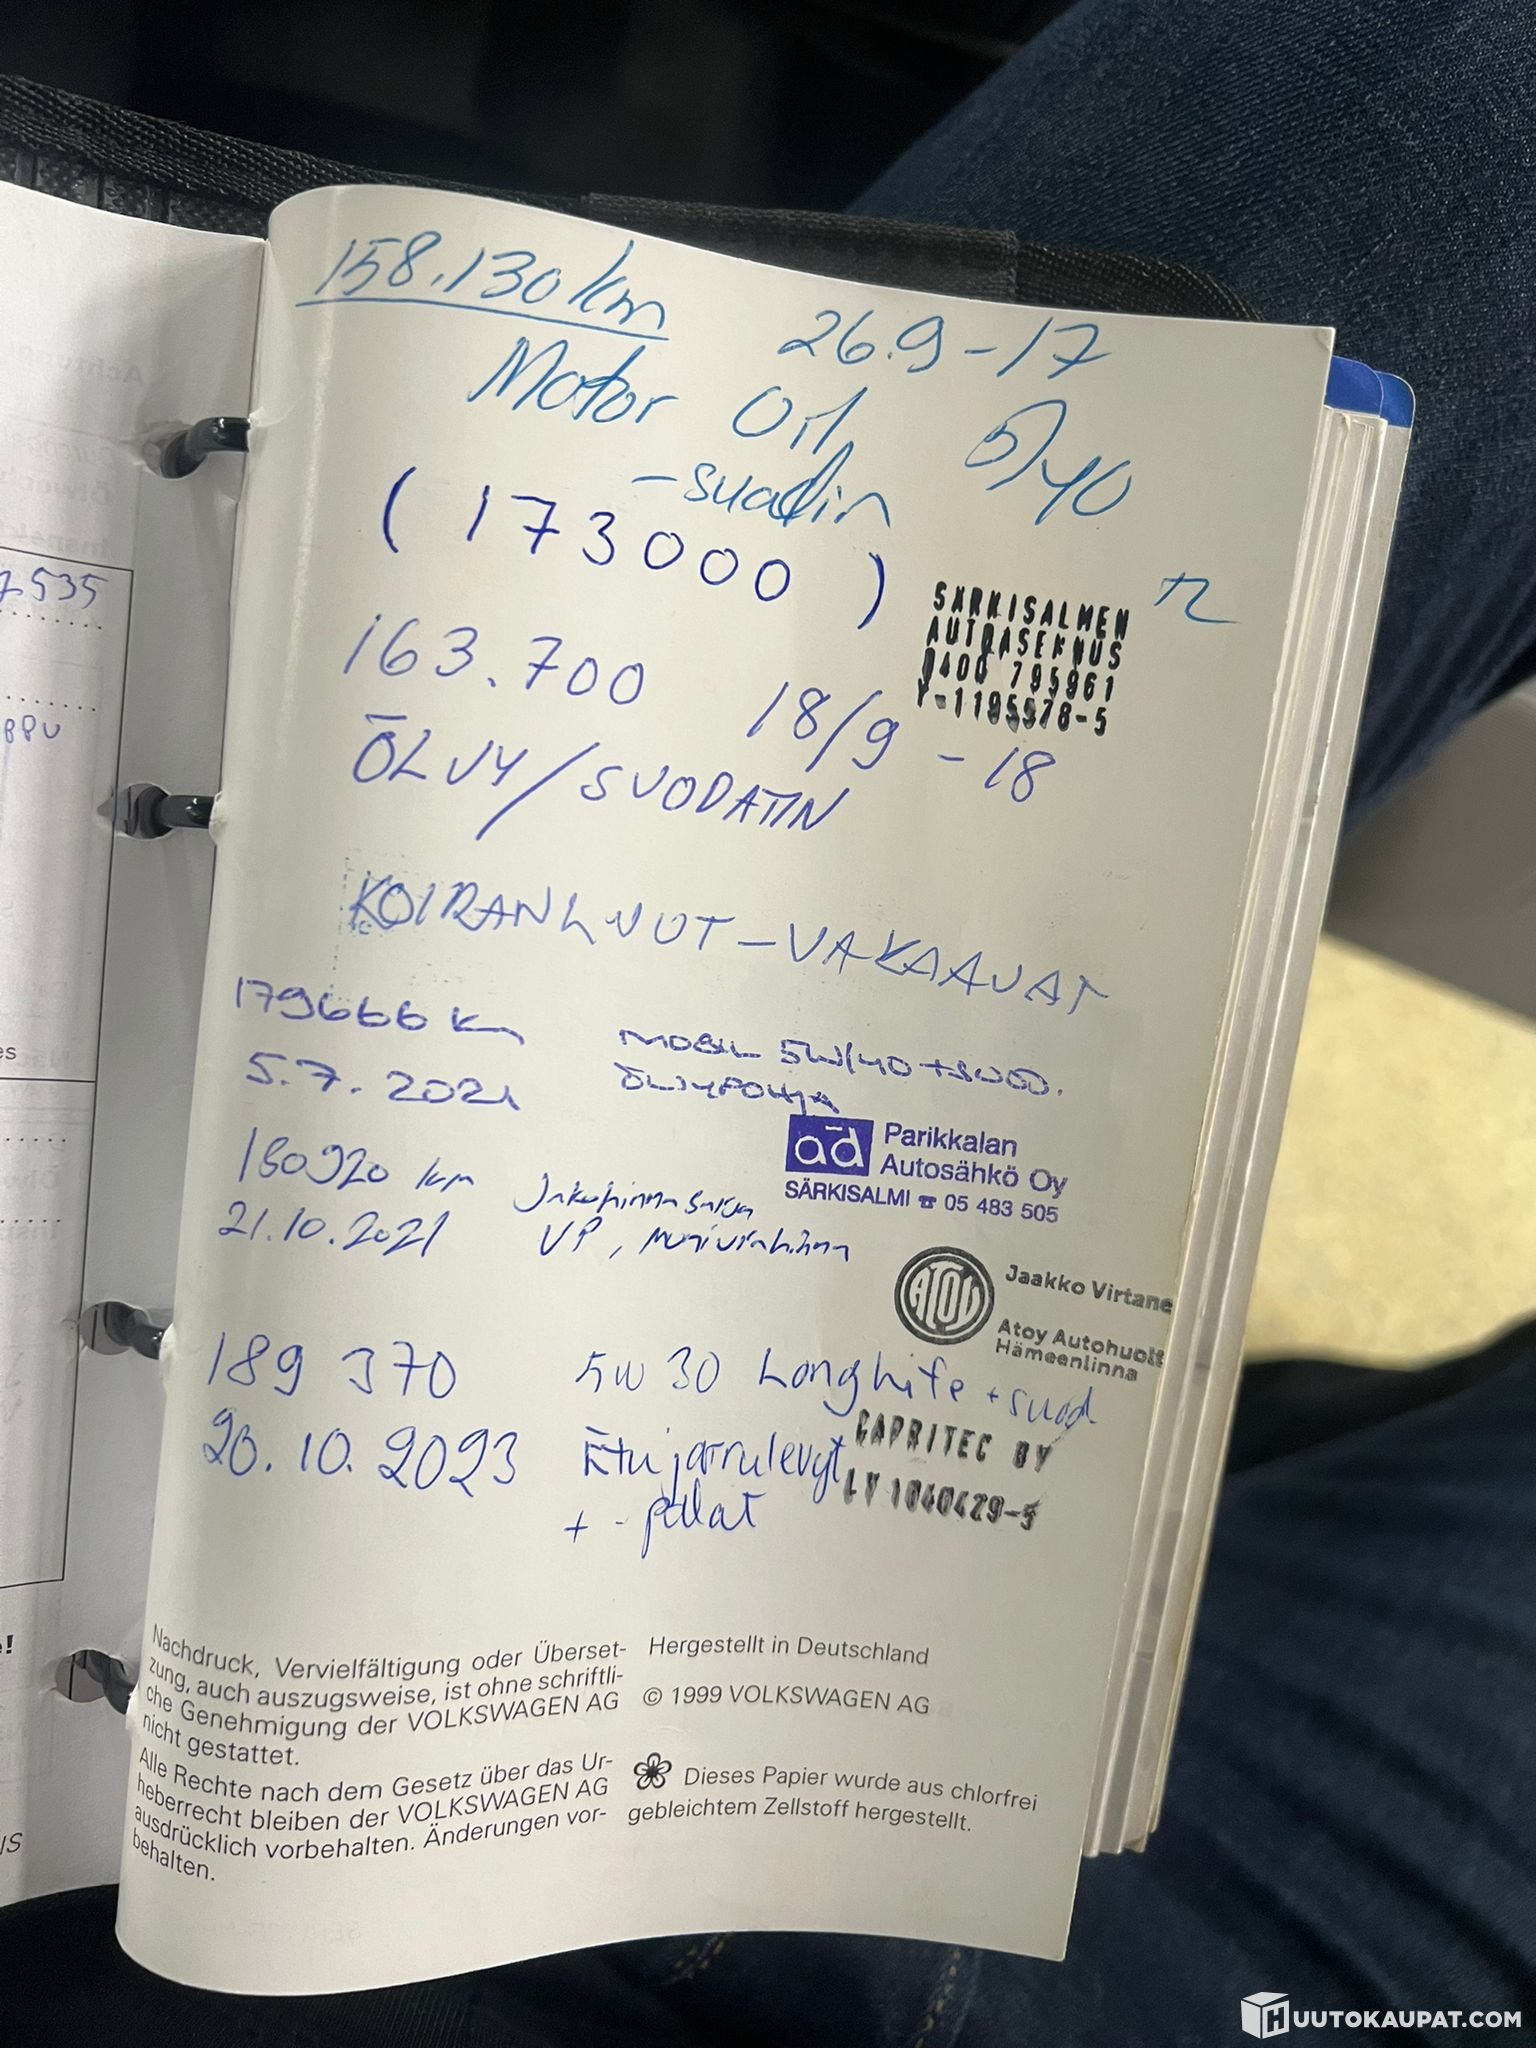 158.130 km
26.9-17
Motor Oil, 5/40
-suodin
(173000)
SÄRKISALMEN
AUTOASENNUS
0400 795961
Y-1195978-5
163.700
18/9-18
ÖLJY/SUODATIN
KOIRANLUUT-VAKAAJAT
179666 km
MOBIL 5W/40+SUOD.
5.7.2021
ÖLJYPOHJA
ad Parikkalan
Autosähkö Oy
SÄRKISALMI ☎ 05 483 505
180920 km
Jakohinnasarja
21.10.2021
VP, monivrahihna
ATOY
Jaakko Virtane
Atoy Autohuolt
Hämeenlinna
189 370
5W30 Longlife + suod
20.10.2023
Etujarrulevyt
+ -palat
CAPRITEC OY
LY 1040429-5
Nachdruck, Vervielfältigung oder Überset-
zung, auch auszugsweise, ist ohne schriftli-
che Genehmigung der VOLKSWAGEN AG
nicht gestattet.
Alle Rechte nach dem Gesetz über das Ur-
heberrecht bleiben der VOLKSWAGEN AG
ausdrücklich vorbehalten. Änderungen vor-
behalten.
Hergestellt in Deutschland
© 1999 VOLKSWAGEN AG
Dieses Papier wurde aus chlorfrei
gebleichtem Zellstoff hergestellt.
HUUTOKAUPAT.COM